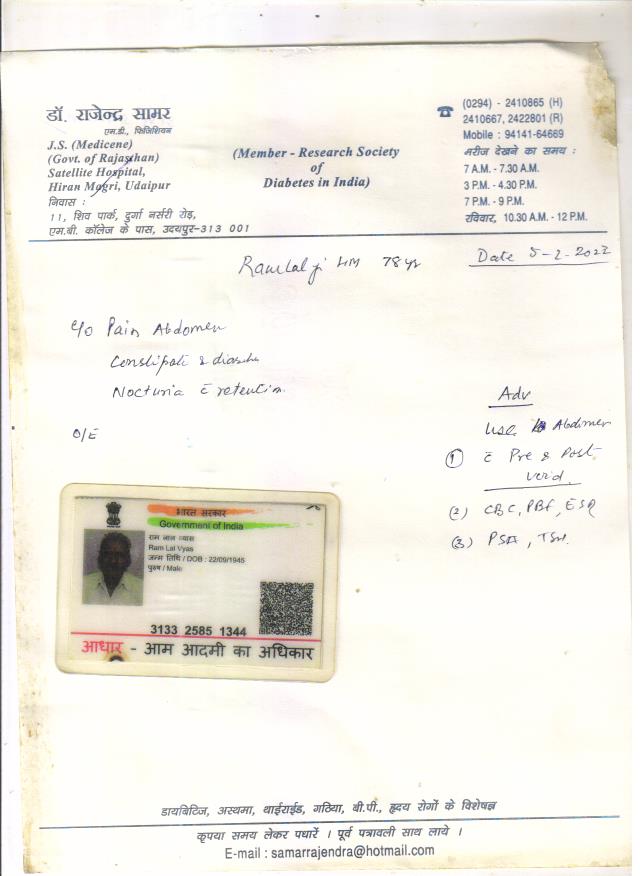 डॉ. राजेन्द्र सामर
एम.डी., फिजिशियन
J.S. (Medicene)
(Govt. of Rajasthan)
Satellite Hospital,
Hiran Magri, Udaipur
निवास :
11, शिव पार्क, दुर्गा नर्सरी रोड़,
एम.बी. कॉलेज के पास, उदयपुर-313 001
(Member - Research Society
of
Diabetes in India)
(0294) - 2410865 (H)
2410667, 2422801 (R)
Mobile : 94141-64669
मरीज देखने का समय :
7 A.M. - 7.30 A.M.
3 P.M. - 4.30 P.M.
7 P.M. - 9 P.M.
रविवार, 10.30 A.M. - 12 P.M.
Ramlal ji 78 yr
Date 5-2-2022
c/o Pain Abdomen
Constipati & diarrhea
Nocturia c̄ retention
O/E
Adv
Abdomen
① c̄ Pre & Post
void
(2) CBC, PBF, ESR
(3) PSA, TSH.
भारत सरकार
Government of India
राम लाल व्यास
Ram Lal Vyas
जन्म तिथि / DOB : 22/09/1945
पुरुष / Male
3133 2585 1344
आधार - आम आदमी का अधिकार
डायबिटिज, अस्थमा, थाईराईड, गठिया, बी.पी., हृदय रोगों के विशेषज्ञ
कृपया समय लेकर पधारें । पूर्व पत्रावली साथ लाये ।
E-mail : samarrajendra@hotmail.com